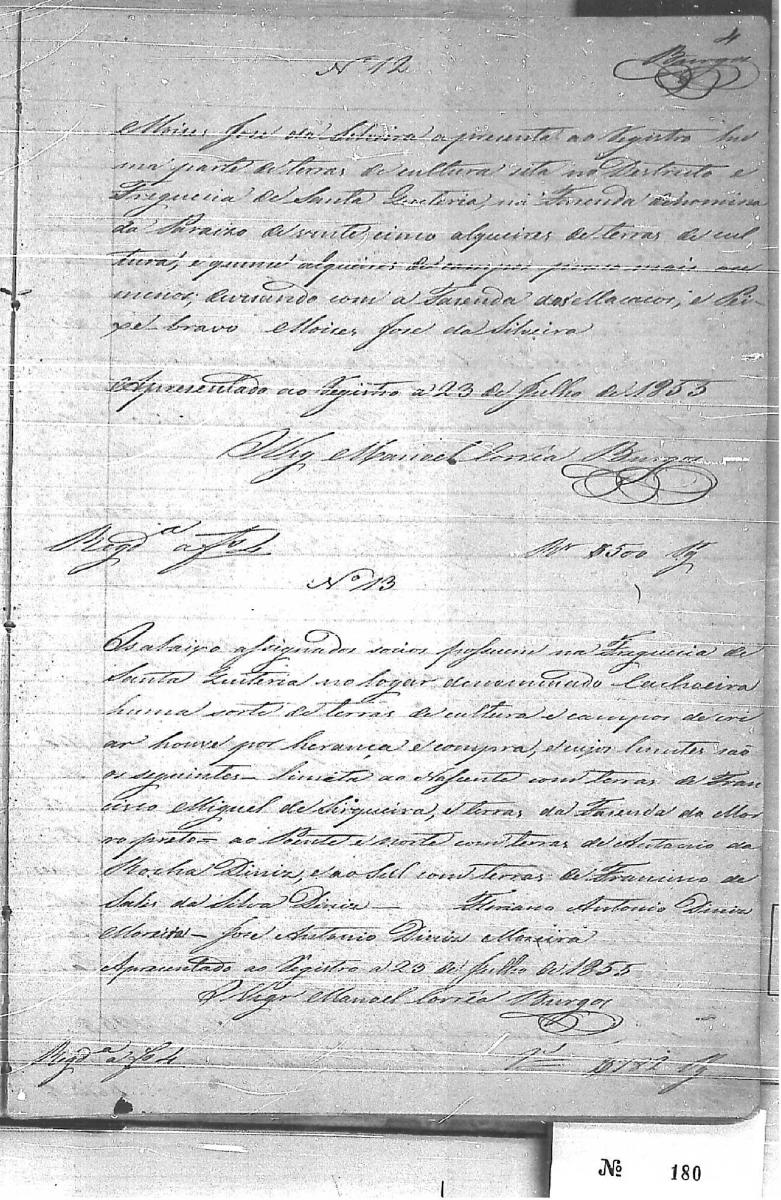 4
Burgos
Nº 12
Moises José da Silveira apresenta ao Registro hu
ma parte de terras de cultura sita no Destricto e
Freguecia de Santa Quiteria, na Fazenda denomina
da Paraizo de vinte, cinco alqueires de terras de cul
tura, e quinze alqueires de campos pouco mais ou
menos, divisando com a Fazenda dos Macacos, e Pei-
xe bravo Moises José da Silveira
Apresentado ao Registro a 23 de Julho de 1855
O Vigº Manoel Corrêa Burgos
Regdª a fs 4
Rs $500 Vgº
Nº 13
Os abaixo assignados socios possuem na Freguecia de
Santa Quiteria no logar denominado Cachoeira
huma sorte de terras de cultura e campos de cri
ar houve por herança e compra, e cujos limites são
os seguintes - limita ao Nascente com terras de Fran
cisco Miguel de Sirqueira, e terras da Fazenda do Mor
ro preto - ao Poente e norte com terras de Antonio da
Rocha Diniz, e ao Sul com terras de Francisco de
Sales da Silva Diniz - Floriano Antonio Diniz
Moreira - José Antonio Diniz Moreira
Apresentado ao Registro a 23 de Julho de 1855
O Vigrº Manoel Corrêa Burgos
Regdª a fs 4
$782 Vgº
Nº 180